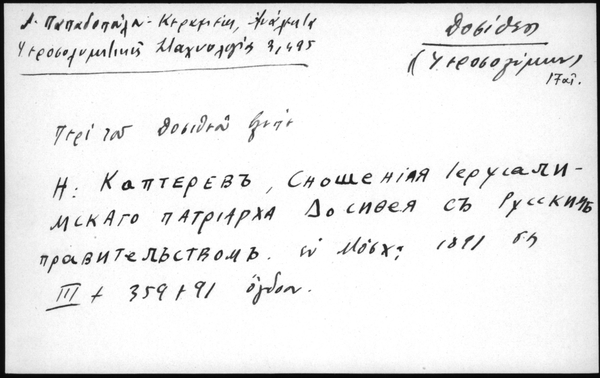 Α. Παπαδοπούλου-Κεραμεύς, Ἀνάλεκτα
Ἱεροσολυμιτικῆς Σταχυολογίας 3,495
Δοσίθεος
(Ἱεροσολύμων)
17 αἰ.
Περὶ τοῦ Δοσιθέου
Н. Каптеревъ, Сношенія Іерусали-
мскаго патріарха Досиѳея съ Русскимъ
правительствомъ. ἐν Μόσχ: 1891 σλ
III + 359 + 91 ὄγδοον.